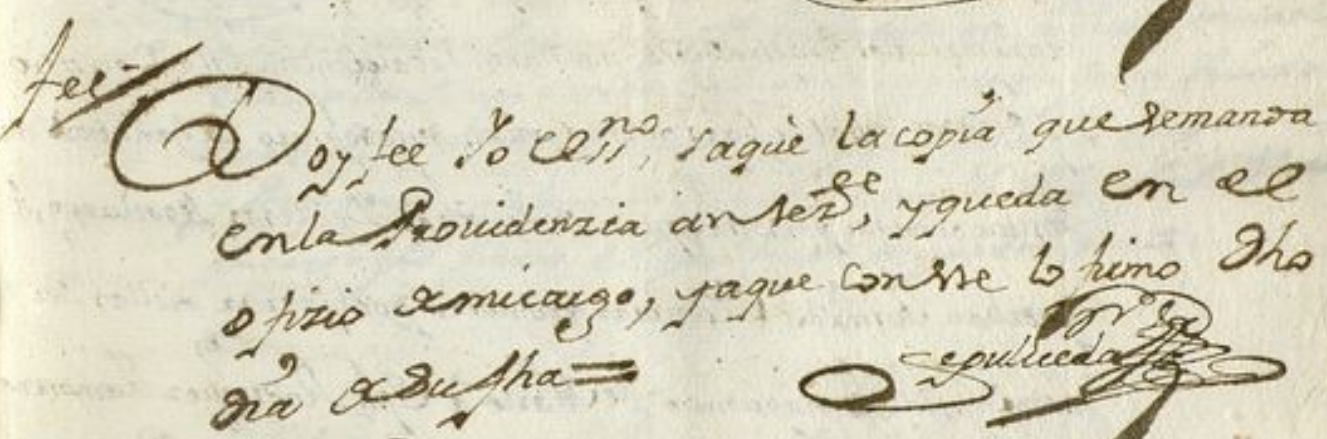 fee
Doy fee Yo el essno, saquè la copia que se manda
en la Providenzia antezte, y queda en el
ofizio de mi cargo, y a que conste lo firmo dho
dia de su fha =
Sepulueda